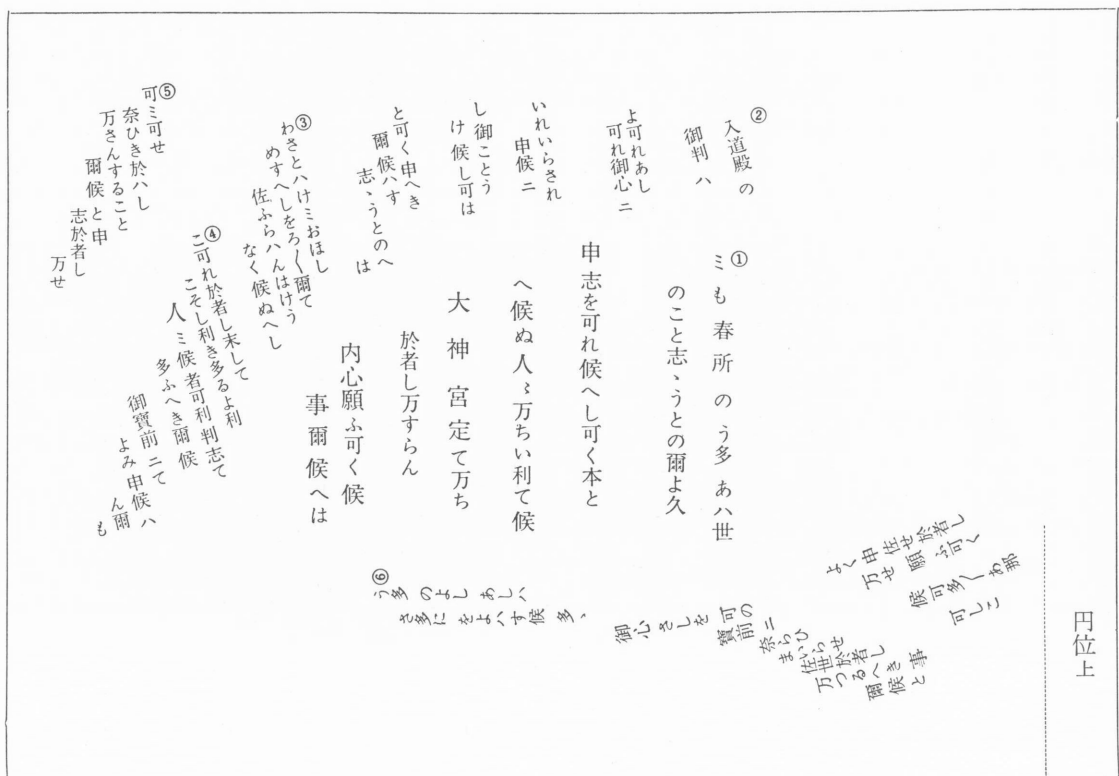 ①
ミも春所のう多あハ世
のこと志ゝうとの爾よ久
申志を可れ候へし可く本と
へ候ぬ人〻万ちい利て候
大神宮定て万ち
於者し万すらん
内心願ふ可く候
事爾候へは
②
入道殿の
御判ハ
よ可れあし
可れ御心ニ
いれいらされ
申候ニ
し御ことう
け候し可は
と可く申へき
爾候ハす
志ゝうとのへ
は
③
わさとハけミおほし
めすへしをろ〳〵爾て
佐ふらハんはけう
なく候ぬへし
④
こ可れ於者し末して
こそし利き多るよ利
人ミ候者可利判志て
多ふへき爾候
御寶前ニて
よみ申候ハ
ん爾
も
⑤
可ミ可せ
奈ひき於ハし
万さんすること
爾候と申
志於者し
万せ
⑥
う多のよしあしハ
さ多にをよハす候多ゝ
御心さしを可の
寶前ニ
奈らひ
まいらせ
佐世於者し
万つるへき事
爾候と
よく申任せ於者し
万せ願ふ可く
候可多〳〵あ那
可しこ
円位上